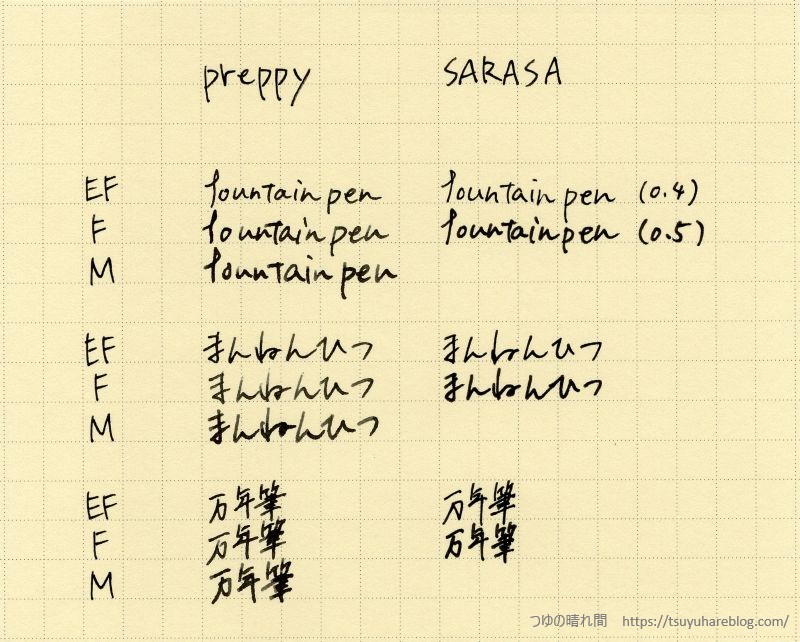 preppy SARASA
EF fountain pen fountain pen (0.4)
F fountain pen fountain pen (0.5)
M fountain pen
EF まんねんひつ まんねんひつ
F まんねんひつ まんねんひつ
M まんねんひつ
EF 万年筆 万年筆
F 万年筆 万年筆
M 万年筆
つゆの晴れ間 https://tsuyuhareblog.com/